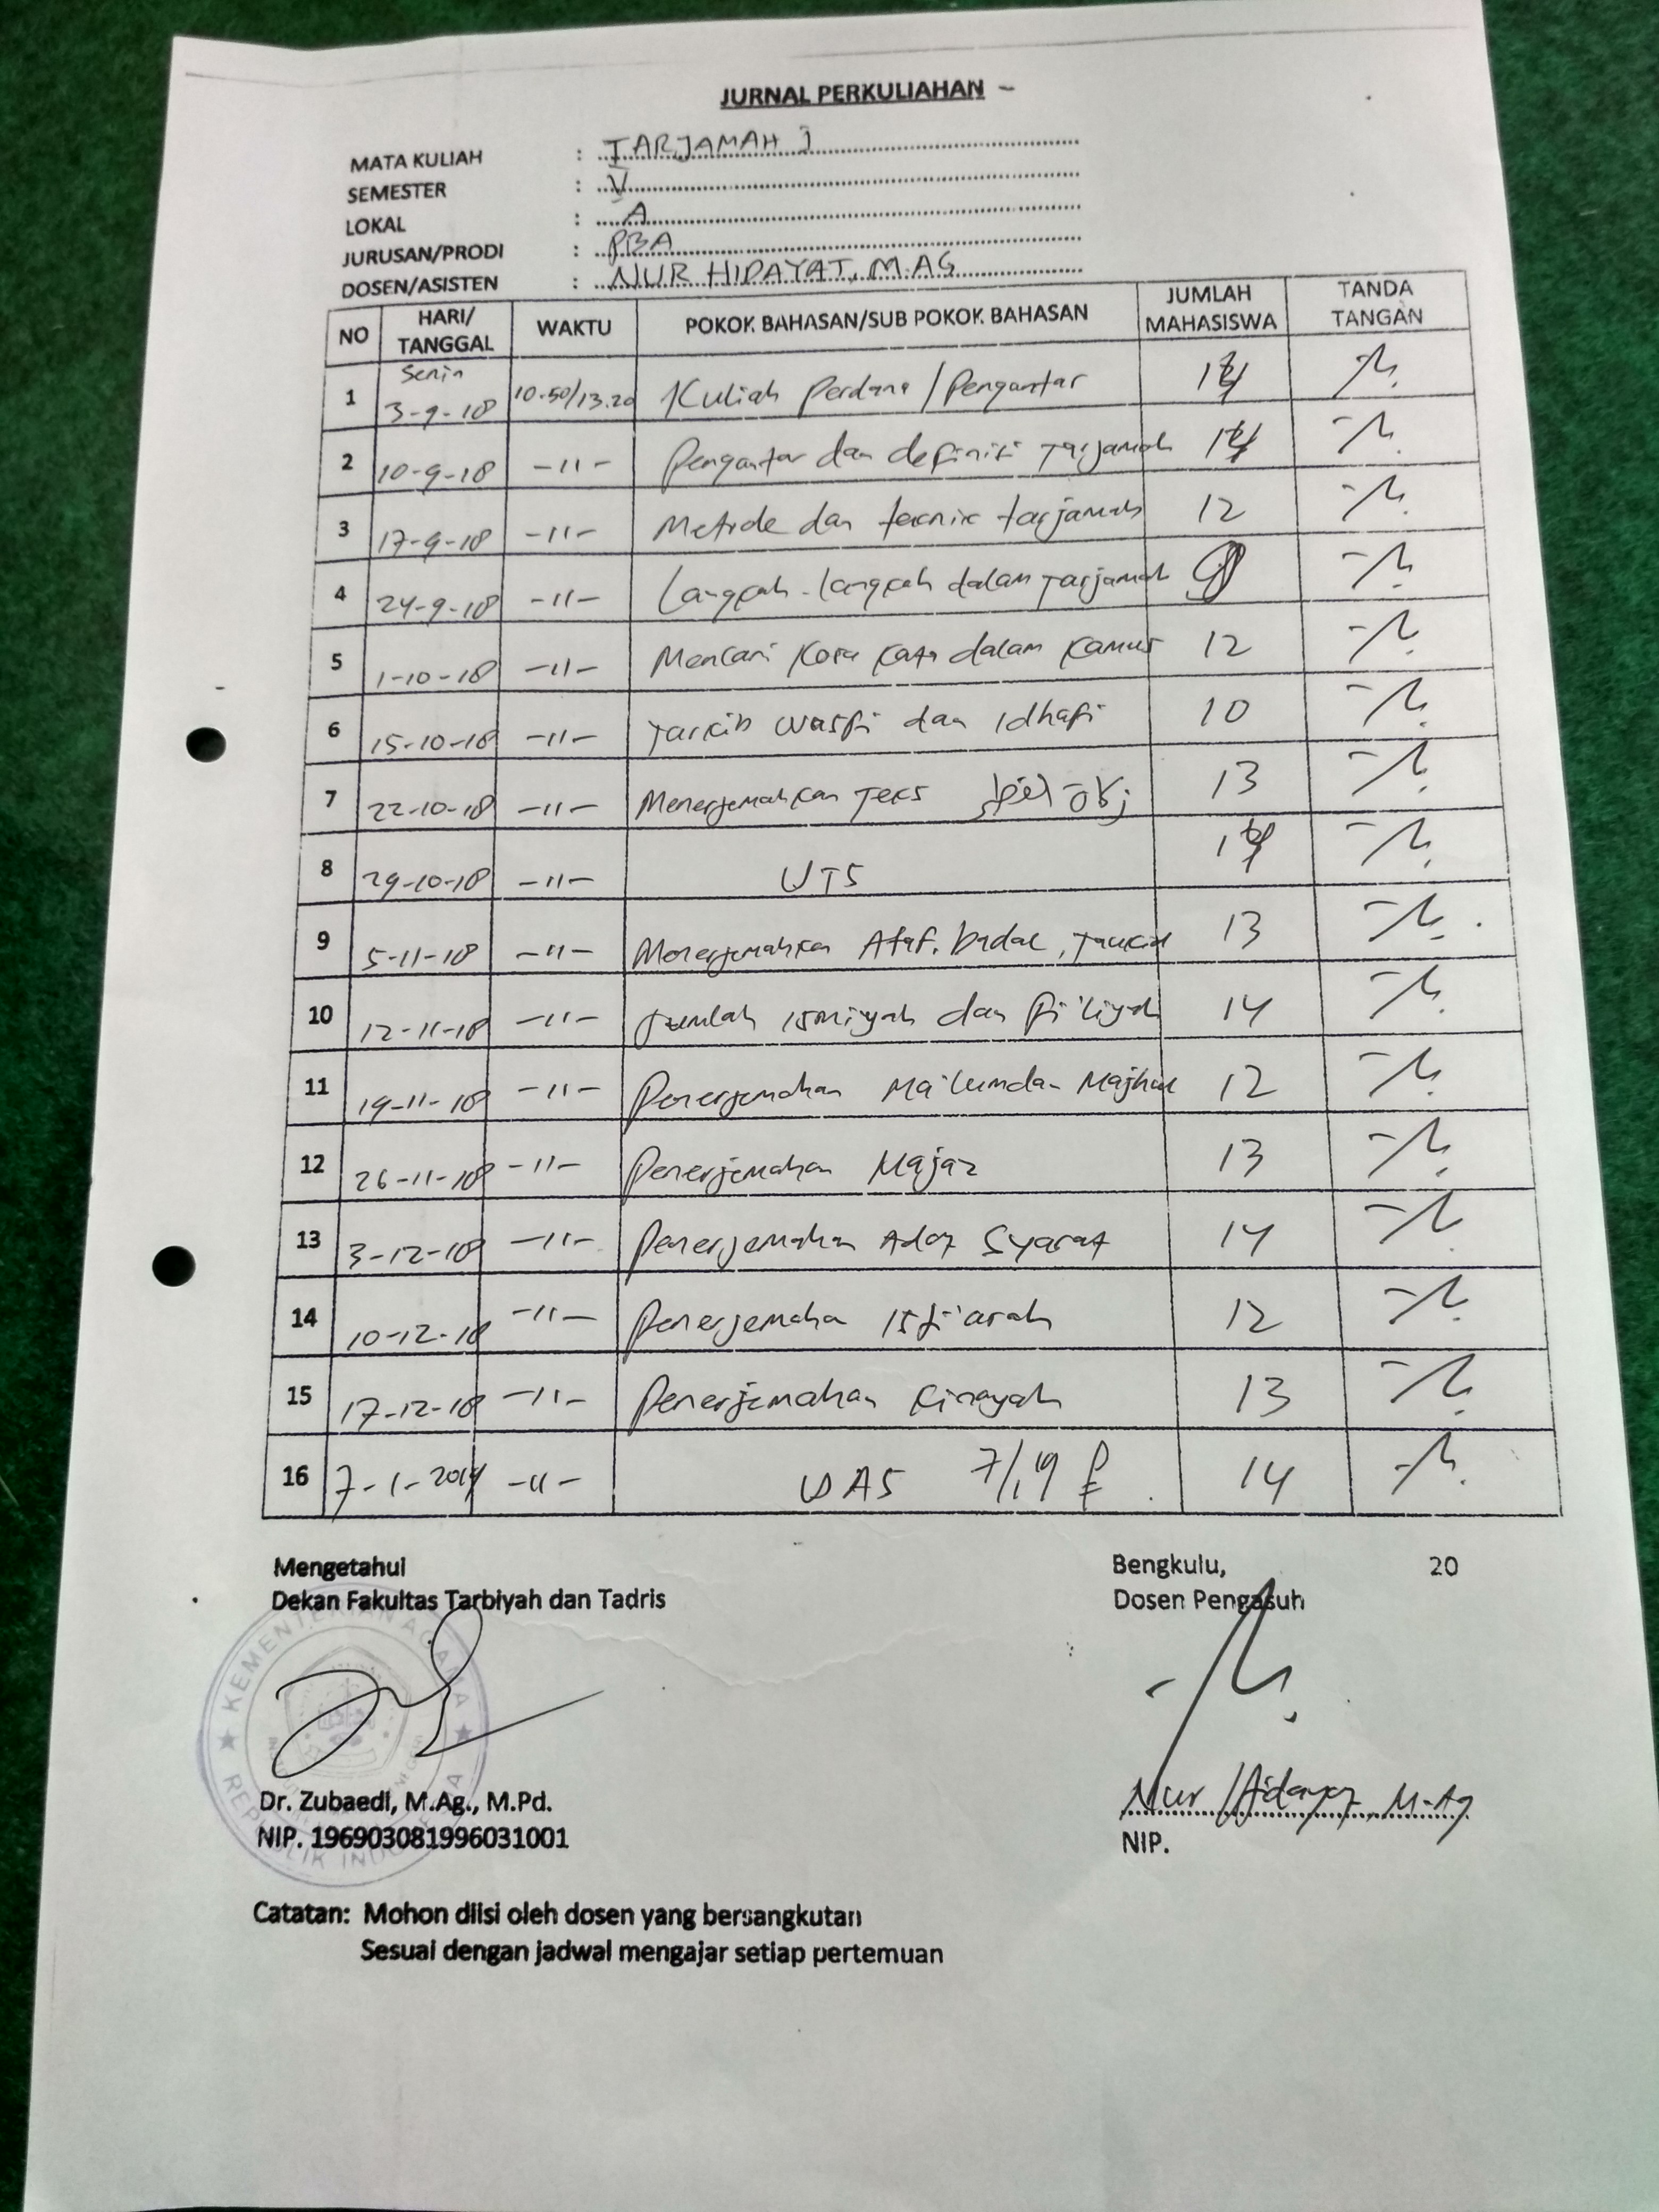 JURNAL PERKULIAHAN
MATA KULIAH : TARJAMAH I
SEMESTER : V
LOKAL : A
JURUSAN/PRODI : PBA
DOSEN/ASISTEN : NUR HIDAYAT, M.AG
NO HARI/TANGGAL WAKTU POKOK BAHASAN/SUB POKOK BAHASAN JUMLAH MAHASISWA TANDA TANGAN
1 Senin 3-9-18 10.50/13.20 Kuliah Perdana / Pengantar
2 10-9-18 -11- Pengantar dan definisi Tarjamah
3 17-9-18 -11- Metode dan teknik tarjamah 12
4 24-9-18 -11- Langkah-langkah dalam Tarjamah
5 1-10-18 -11- Mencari Kosa kata dalam kamus 12
6 15-10-18 -11- Tarkib wasfi dan idhafi 10
7 22-10-18 -11- Menerjemahkan Teks 13
8 29-10-18 -11- UTS
9 5-11-18 -11- Menerjemahkan Ataf, badal, Taukid 13
10 12-11-18 -11- Jumlah ismiyah dan fi'liyah 14
11 19-11-18 -11- Penerjemahan Ma'lum dan Majhul 12
12 26-11-18 -11- Penerjemahan Majaz 13
13 3-12-18 -11- Penerjemahan Adat Syarat 14
14 10-12-18 -11- Penerjemaha isti'arah 12
15 17-12-18 -11- Penerjemahan Kinayah 13
16 7-1-2019 -11- UAS 7/1 19 14
Mengetahui
Dekan Fakultas Tarbiyah dan Tadris
KEMENTERIAN AGAMA
REPUBLIK INDONESIA
Dr. Zubaedi, M.Ag., M.Pd.
NIP. 196903081996031001
Bengkulu, 20
Dosen Pengasuh
Nur Hidayat, M.Ag
NIP.
Catatan: Mohon diisi oleh dosen yang bersangkutan
Sesuai dengan jadwal mengajar setiap pertemuan